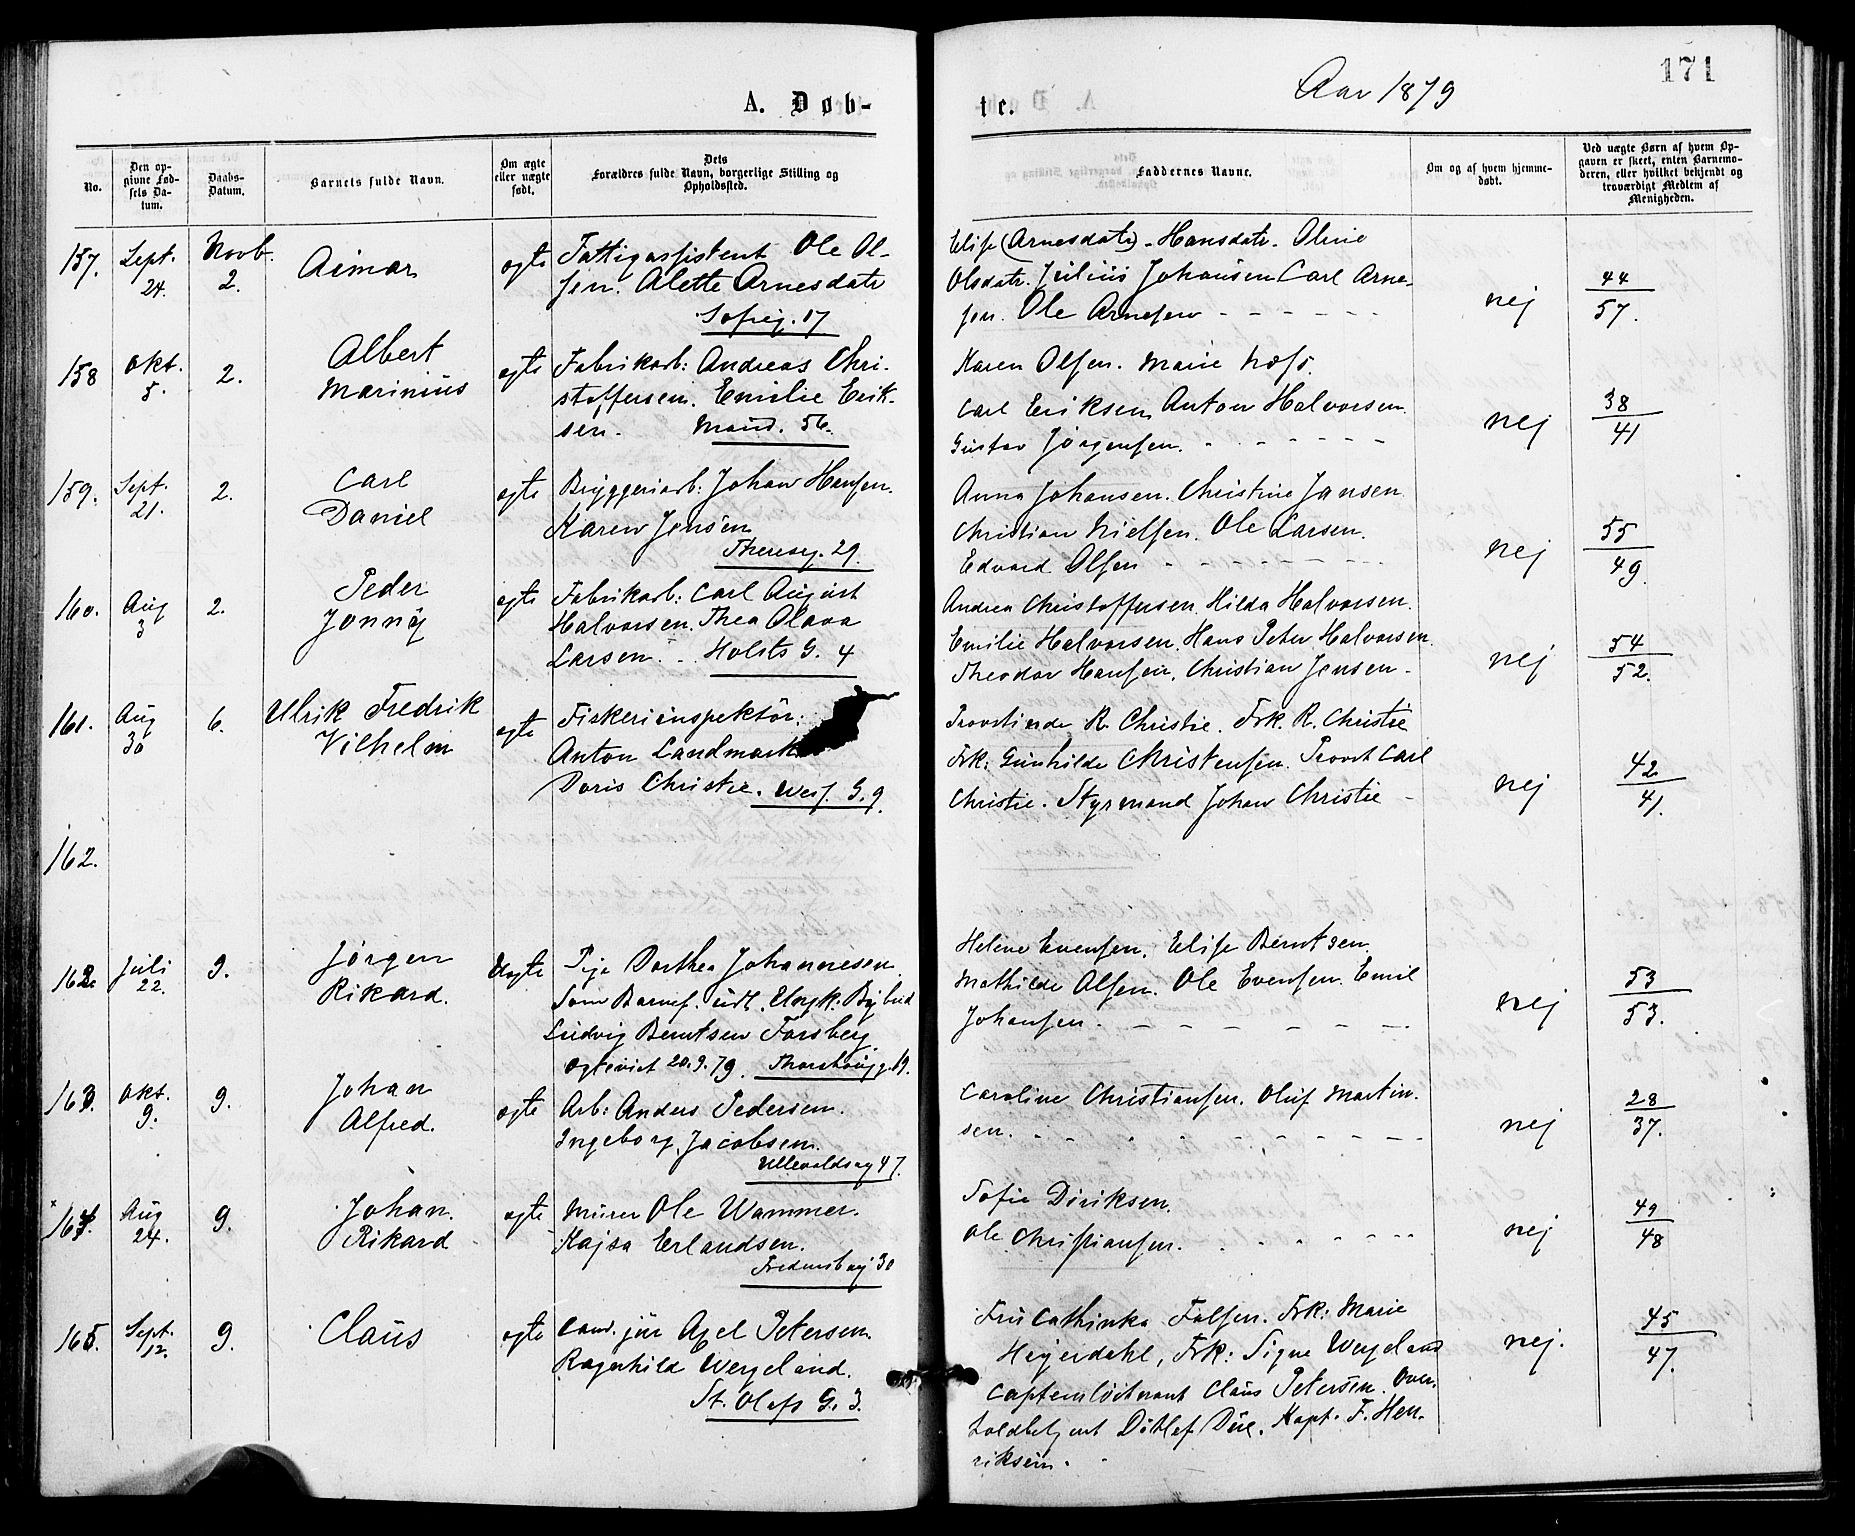 Aar 1879
171
A. Døb-
te.
No.
Den op-
givne Fød-
sels Da-
tum.
Daabs-
Datum.
Barnets fulde Navn.
Om ægte
eller uægte
født.
Dets
Forældres fulde Navn, borgerlige Stilling og
Opholdssted.
Faddernes Navne.
Om og af hvem hjemme-
døbt.
Ved uægte Børn af hvem Op-
gaven er skeet, enten Barnemo-
deren, eller hvilket bekjendt og
troværdigt Medlem af
Menigheden.
157. Sept. 24. Novb. 2. Aimar ægte
Fattigassistent Ole Ol-
sen. Alette Arnesdatr
Sofieg. 17
Elise (Arnesdatr) - Hansdatr. Oline
Olsdatr. Julius Johansen Carl Arne-
sen. Ole Arnesen
nej 44/57.
158 Okt. 5. 2. Albert
Marinius ægte
Fabrikarb: Andreas Chri-
stoffersen. Emilie Erik-
sen. Maud. 56.
Karen Olsen. Marie Næss.
Carl Eriksen Anton Halvorsen
Gustav Jørgensen.
nej 38/41
159. Sept. 21. 2. Carl
Daniel ægte
Bryggeriarb: Johan Hansen.
Karen Jensen
Thereseg. 29.
Anna Johansen. Christine Jansen
Christian Nielsen. Ole Larsen.
Edvard Olsen
nej 55/49.
160. Aug 3 2. Peder
Jonny ægte
Fabrikarb: Carl August
Halvorsen. Thea Olava
Larsen. Holsts G. 4
Andrea Christoffersen. Hilda Halvorsen.
Emilie Halvorsen. Hans Peter Halvorsen
Theodor Hansen. Christian Jensen
nej 54/52.
161. Aug 30 6. Ulrik Fredrik
Vilhelm ægte
Fiskeriinspektör:
Anton Landmark
Doris Christie. Wess. G. 9
Provstinde R. Christie. Frk. R. Christie
Frk: Gunhilde Christensen. Provst Carl
Christie. Styrmand Johan Christie
nej 42/41.
162.
162. Juli 22. 9. Jørgen
Rikard. Uægte
Pige Dorthea Johannesen.
Som Barnef. udl. Ungk: Bybud
Ludvig Berntsen Forsberg.
ægteviet 20.9.79.
Helene Evensen. Elise Berntsen.
Mathilde Olsen. Ole Evensen. Emil
Johansen.
nej 53/53.
163. Okt. 9. 9. Johan
Alfred. ægte
Arb: Anders Pedersen.
Ingeborg Jacobsen.
Ullevoldsv 47.
Caroline Christiansen. Oluf Martin-
sen.
nej 28/37.
164. Aug 24. 9. Johan.
Rikard ægte
Murer Ole Wammer.
Kajsa Erlandsen.
30
Sofie Diriksen.
Ole Christiansen.
nej 49/48
165. Sept. 12. 9. Claus ægte
Cand. jur Axel Petersen.
Ragnhild Wergeland.
St. Olafs G. 3.
Fru Cathinka Falsen. Frk: Marie
Heyerdahl, Frk: Signe Wergeland
Captemløitnant Claus Petersen. Over-
toldbetjent Ditlef Due. Kapt. F. Hen-
riksen.
nej. 45/47.